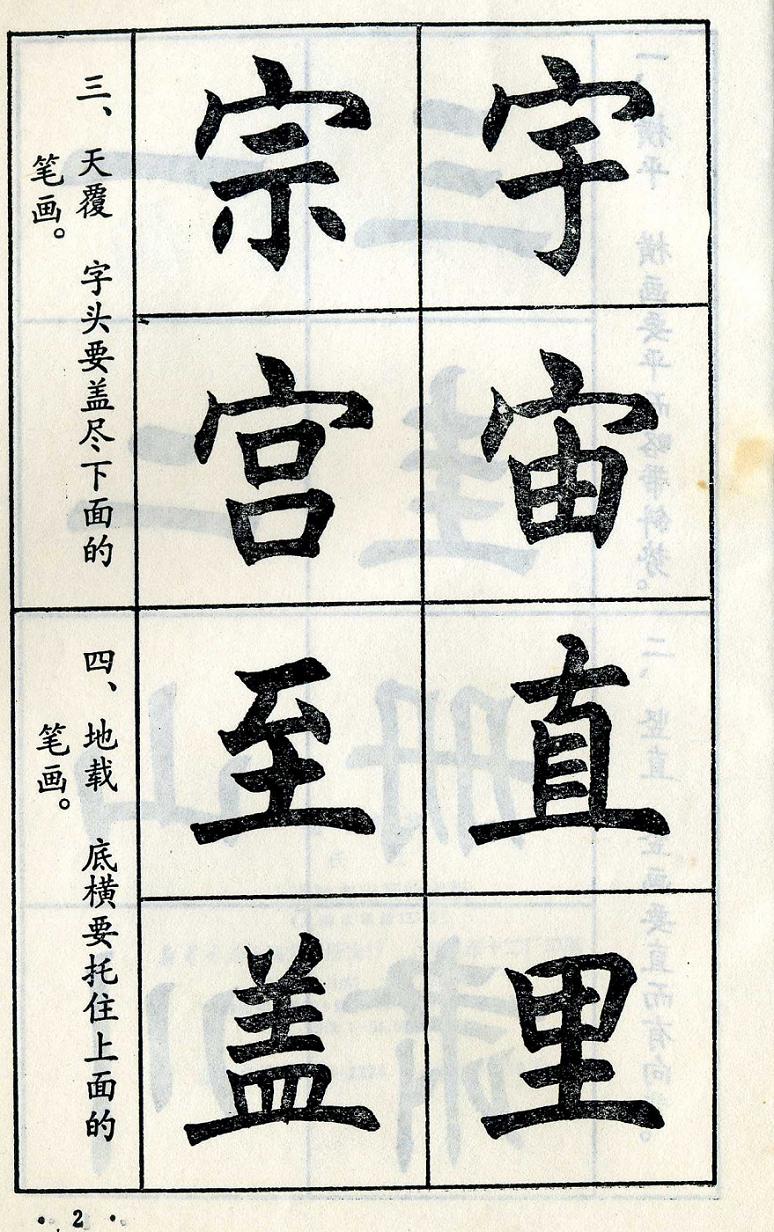 宇宙直里
宗宫至盖
三、天覆 字头要盖尽下面的
笔画。
四、地载 底横要托住上面的
笔画。
·2·